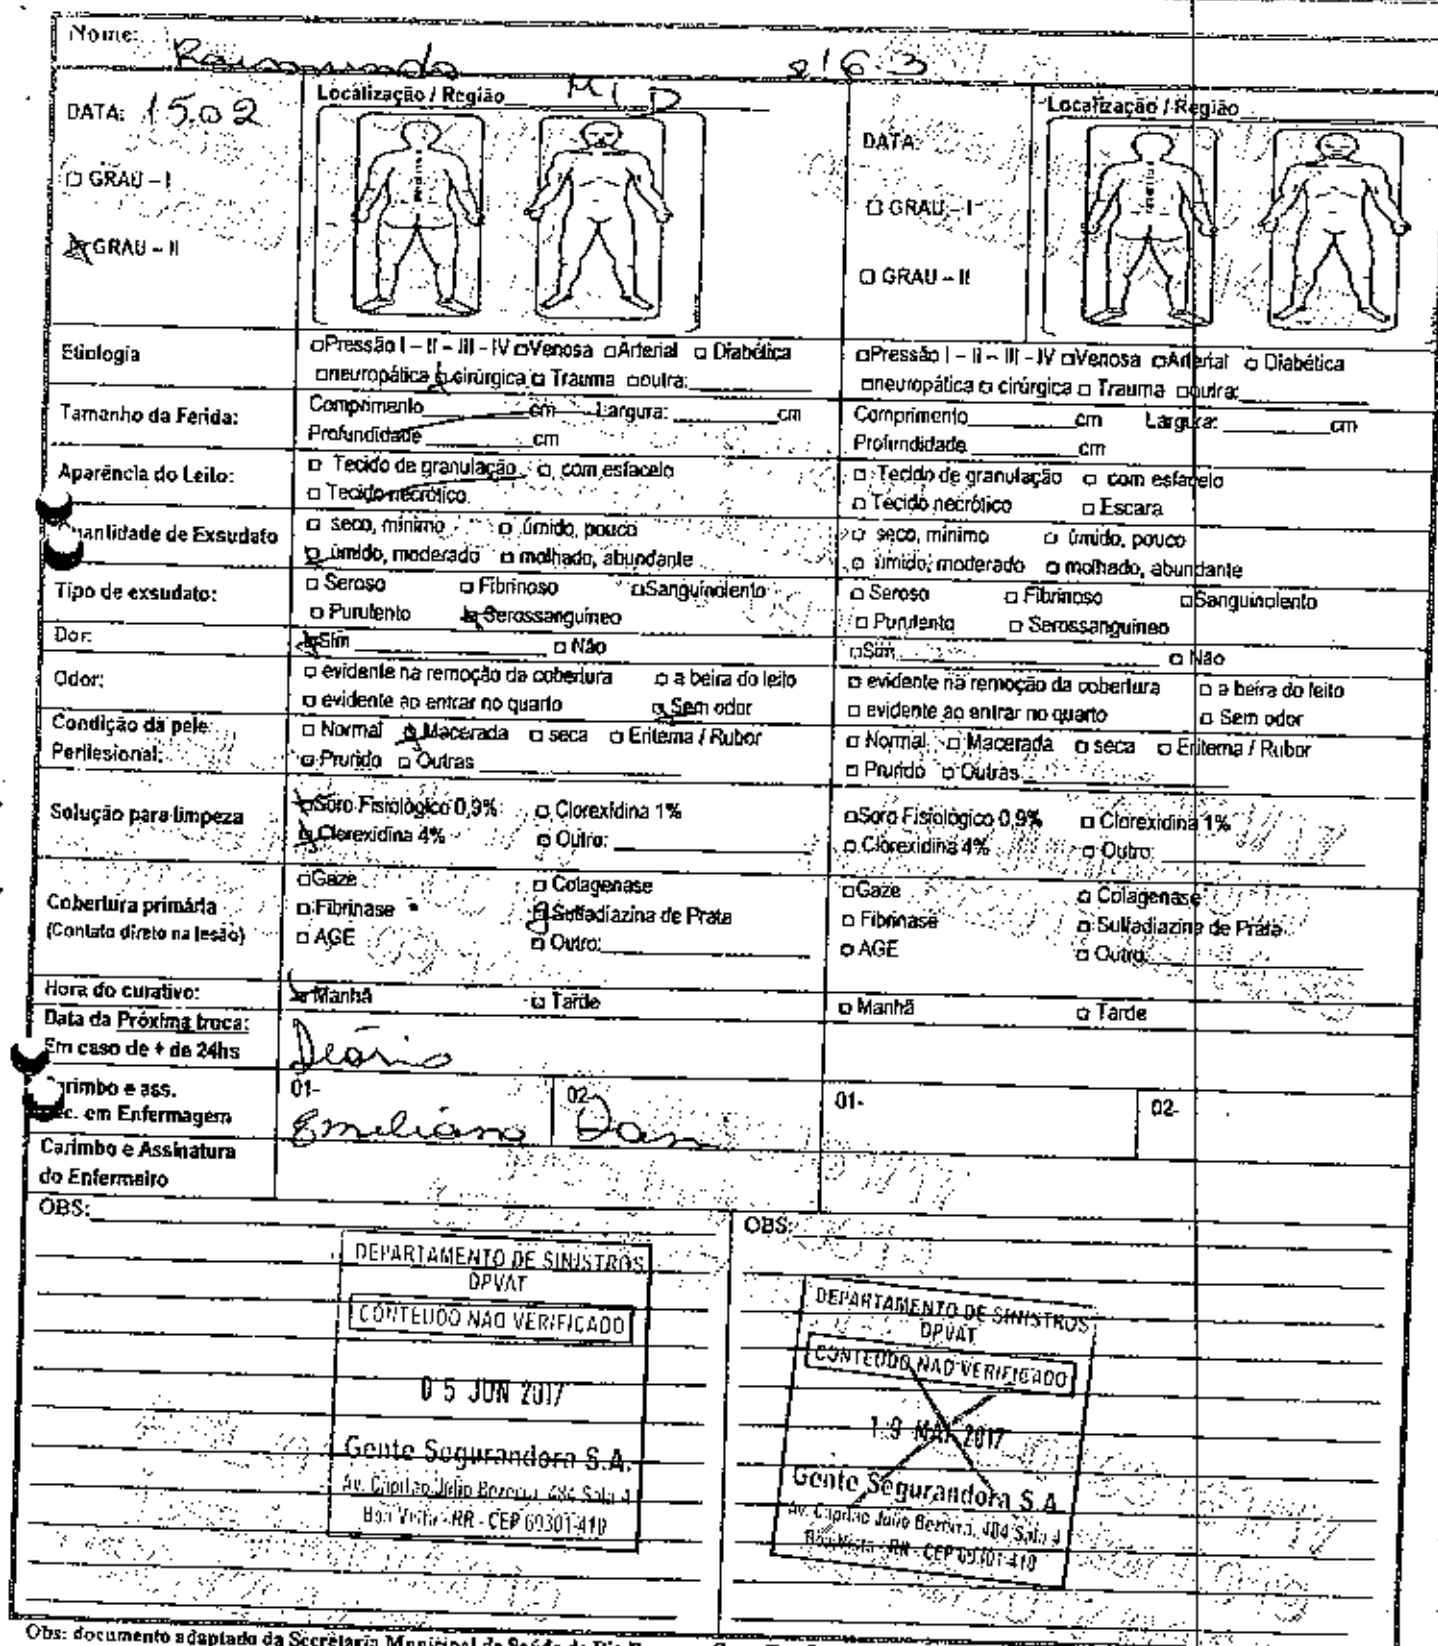 Nome: Raimundo 216.3
DATA: 15.02
□ GRAU - I
□ GRAU - II
Localização / Região MID
DATA:
□ GRAU - I
□ GRAU - II
Localização / Região
Etiologia
□Pressão I - II - III - IV □Venosa □Arterial □ Diabética
□neuropática □ cirúrgica □ Trauma □outra:
□Pressão I - II - III - IV □Venosa □Arterial □ Diabética
□neuropática □ cirúrgica □ Trauma □outra:
Tamanho da Ferida:
Comprimento cm Largura: cm
Profundidade cm
Comprimento cm Largura: cm
Profundidade cm
Aparência do Leito:
□ Tecido de granulação □ com esfacelo
□ Tecido necrótico
□ Tecido de granulação □ com esfacelo
□ Tecido necrótico □ Escara
Quantidade de Exsudato
□ seco, mínimo □ úmido, pouco
□ úmido, moderado □ molhado, abundante
□ seco, mínimo □ úmido, pouco
□ úmido, moderado □ molhado, abundante
Tipo de exsudato:
□ Seroso □ Fibrinoso □Sanguinolento
□ Purulento □ Serossanguíneo
□ Seroso □ Fibrinoso □Sanguinolento
□ Purulento □ Serossanguíneo
Dor:
□Sim □ Não
□Sim □ Não
Odor:
□ evidente na remoção da cobertura □ a beira do leito
□ evidente ao entrar no quarto □ Sem odor
□ evidente na remoção da cobertura □ a beira do leito
□ evidente ao entrar no quarto □ Sem odor
Condição da pele
Perilesional:
□ Normal □ Macerada □ seca □ Eritema / Rubor
□ Prurido □ Outras
□ Normal □ Macerada □ seca □ Eritema / Rubor
□ Prurido □ Outras
Solução para limpeza
□Soro Fisiológico 0,9% □ Clorexidina 1%
□ Clorexidina 4% □ Outro:
□Soro Fisiológico 0,9% □ Clorexidina 1%
□ Clorexidina 4% □ Outro:
Cobertura primária
(Contato direto na lesão)
□Gaze □ Colagenase
□ Fibrinase □ Sulfadiazina de Prata
□ AGE □ Outro:
□Gaze □ Colagenase
□ Fibrinase □ Sulfadiazina de Prata
□ AGE □ Outro:
Hora do curativo:
□ Manhã □ Tarde
□ Manhã □ Tarde
Data da Próxima troca:
Em caso de + de 24hs
Diário
Carimbo e ass.
Tec. em Enfermagem
01- Emiliano 02-
01- 02-
Carimbo e Assinatura
do Enfermeiro
OBS:
DEPARTAMENTO DE SINISTROS
DPVAT
CONTEUDO NAO VERIFICADO
05 JUN 2017
Gente Segurandora S.A.
Av. Capitao Julio Bezerra, 484 Sala 4
Boa Vista - RR - CEP 69301-410
OBS:
DEPARTAMENTO DE SINISTROS
DPVAT
CONTEUDO NAO VERIFICADO
19 MAI 2017
Gente Segurandora S.A
Av. Capitao Julio Bezerra, 484 Sala 4
Boa Vista - RR - CEP 69301-410
Obs: documento adaptado da Secretaria Municipal de Saúde